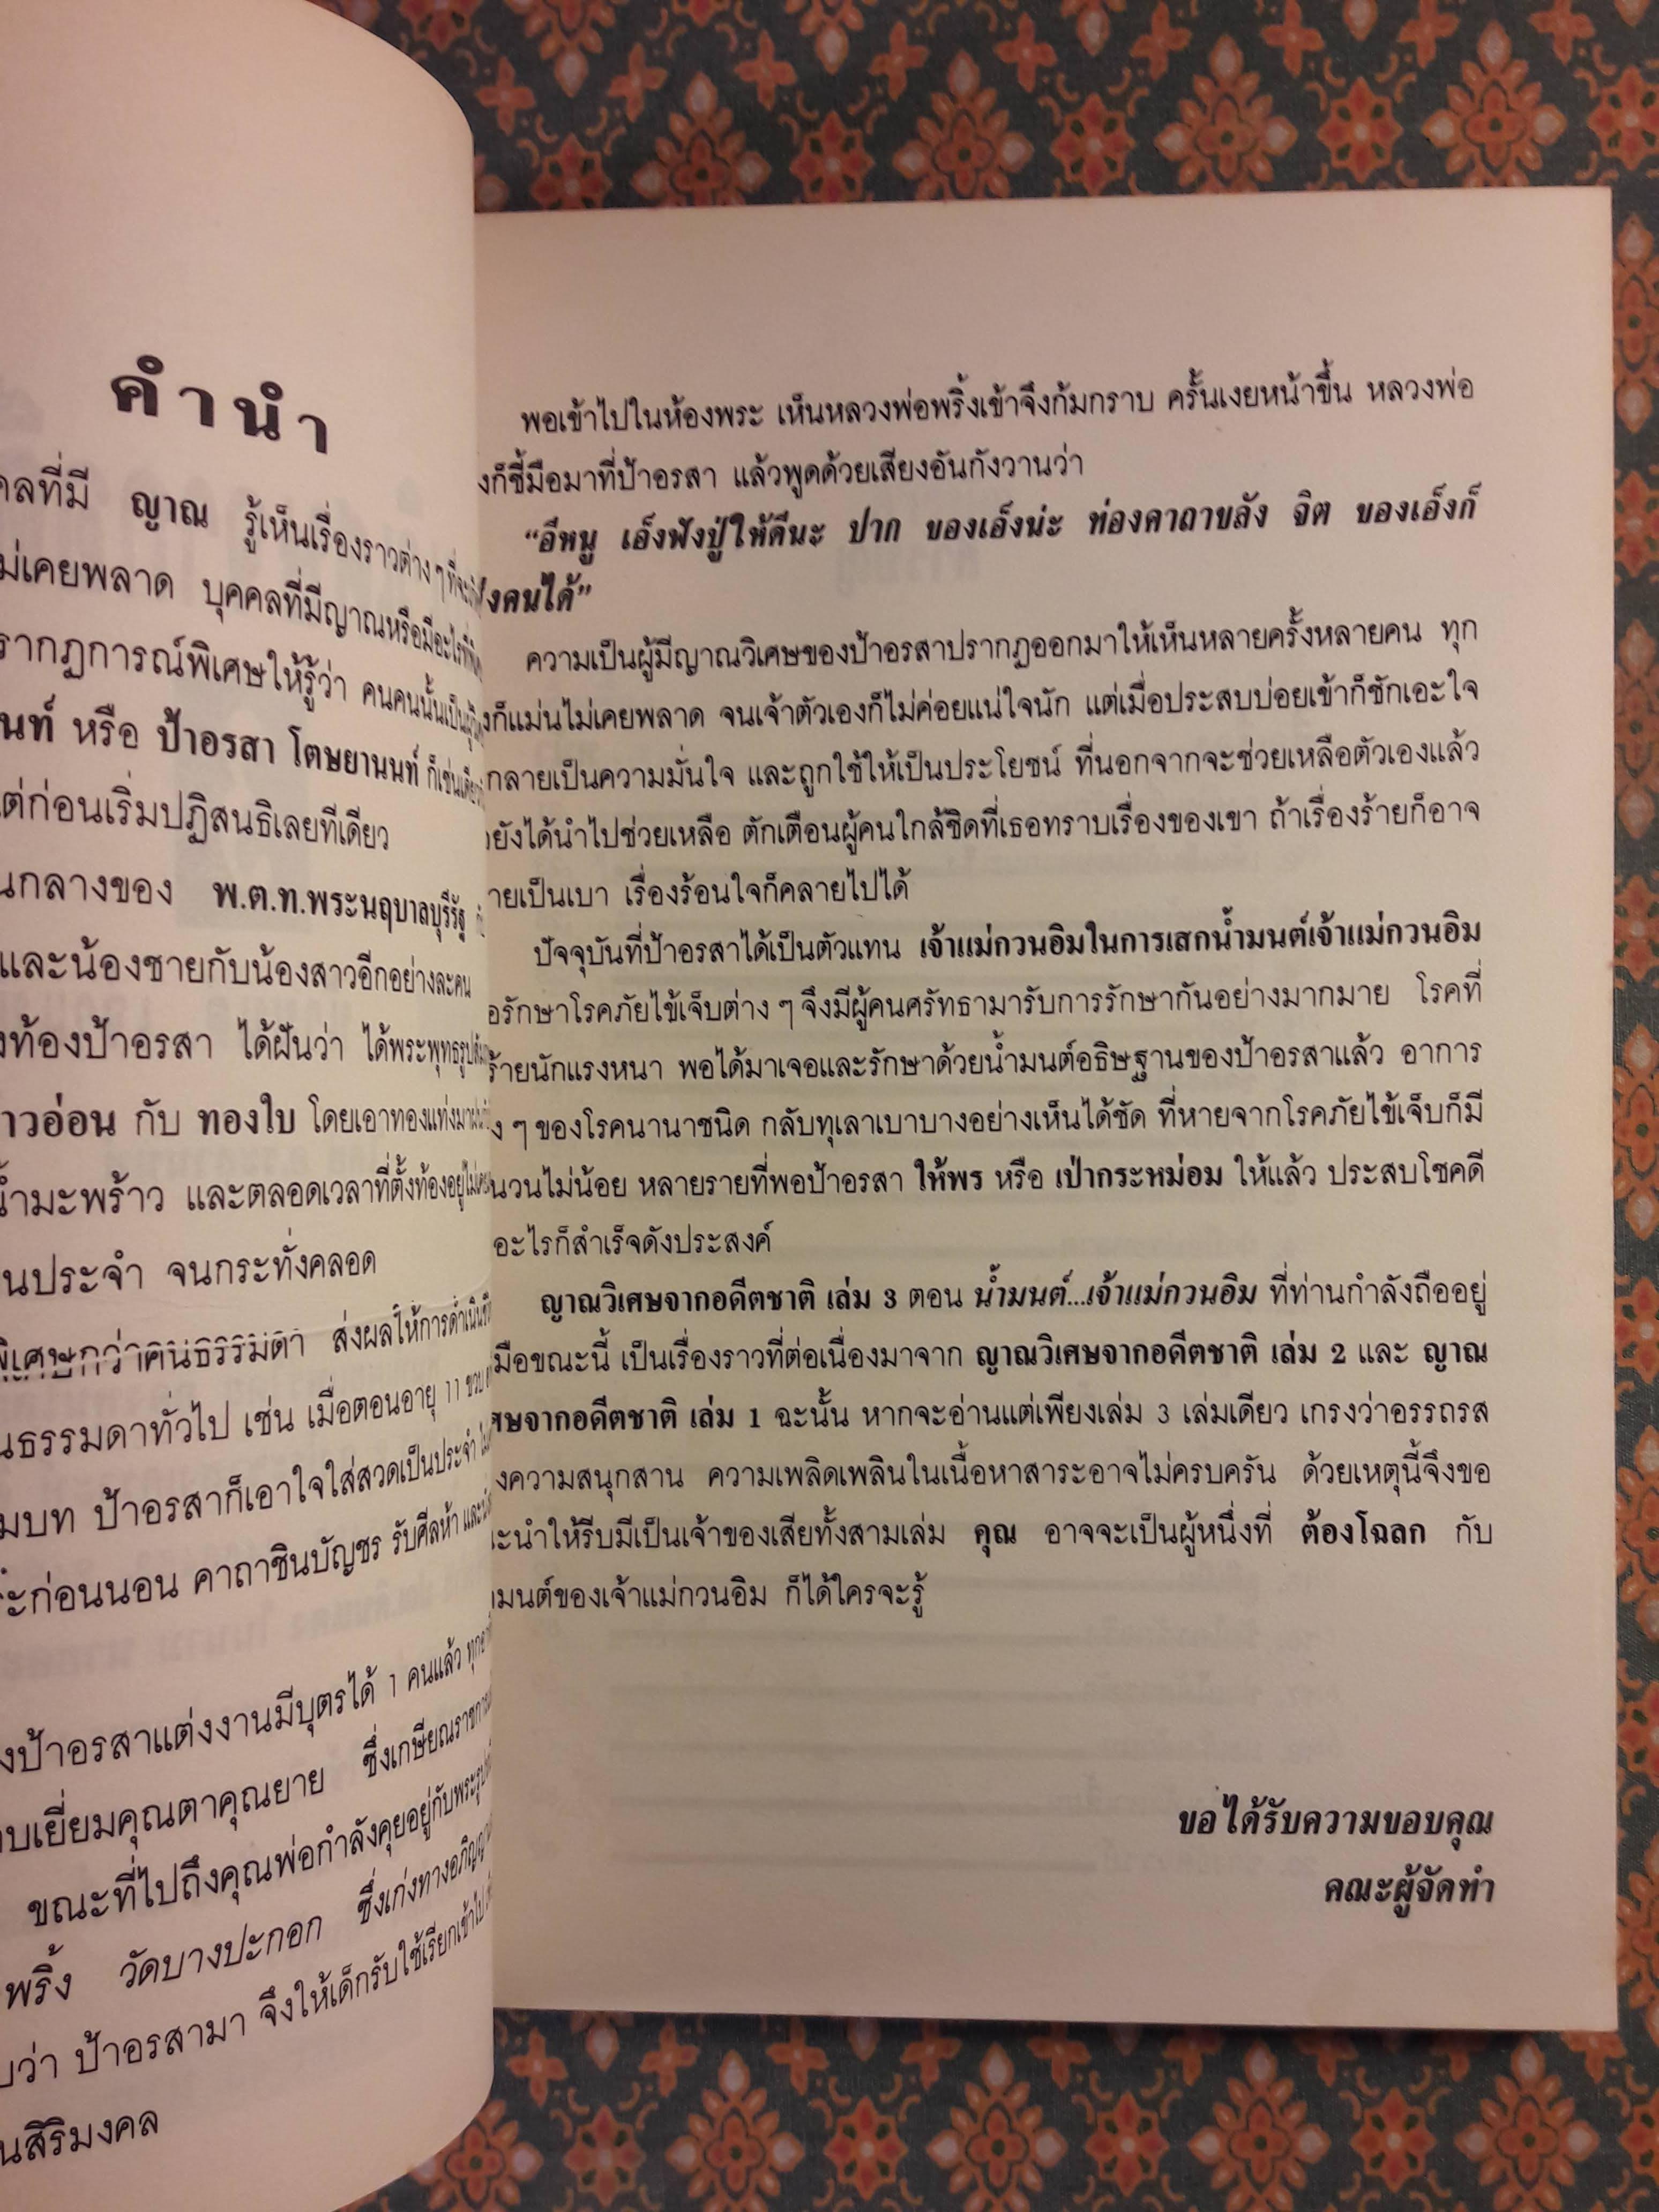 คำนำ
คลที่มี ญาณ รู้เห็นเรื่องราวต่าง ๆ ที่จะ
ไม่เคยพลาด บุคคลที่มีญาณหรือมีอะไร
รากฏการณ์พิเศษให้รู้ว่า คนคนนั้นเป็น
นนท์ หรือ ป้าอรสา โตษยานนท์ ก็เช่นเดียว
ต่ก่อนเริ่มปฏิสนธิเลยทีเดียว
นกลางของ พ.ต.ท.พระนฤบาลบุรีรัฐ
และน้องชายกับน้องสาวอีกอย่างละคน
งท้องป้าอรสา ได้ฝันว่า ได้พระพุทธรูป
าวอ่อน กับ ทองใบ โดยเอาทองแท่งมา
น้ำมะพร้าว และตลอดเวลาที่ตั้งท้องอยู่ไม่เคย
นประจำ จนกระทั่งคลอด
พิเศษกว่าคนธรรมดา ส่งผลให้การดำเนิน
นธรรมดาทั่วไป เช่น เมื่อตอนอายุ 11 ขวบ
มบท ป้าอรสาก็เอาใจใส่สวดเป็นประจำ
ะก่อนนอน คาถาชินบัญชร รับศีลห้า และ
งป้าอรสาแต่งงานมีบุตรได้ 1 คนแล้ว
บเยี่ยมคุณตาคุณยาย ซึ่งเกษียณราชการ
ขณะที่ไปถึงคุณพ่อกำลังคุยอยู่กับพระรูป
พริ้ง วัดบางปะกอก ซึ่งเก่งทางอภิญญา
บว่า ป้าอรสามา จึงให้เด็กรับใช้เรียกเข้าไป
นสิริมงคล
พอเข้าไปในห้องพระ เห็นหลวงพ่อพริ้งเข้าจึงก้มกราบ ครั้นเงยหน้าขึ้น หลวงพ่อ
งก็ชี้มือมาที่ป้าอรสา แล้วพูดด้วยเสียงอันกังวานว่า
“อีหนู เอ็งฟังปู่ให้ดีนะ ปาก ของเอ็งน่ะ ท่องคาถาขลัง จิต ของเอ็งก็
งคนได้”
ความเป็นผู้มีญาณวิเศษของป้าอรสาปรากฏออกมาให้เห็นหลายครั้งหลายคน ทุก
งก็แม่นไม่เคยพลาด จนเจ้าตัวเองก็ไม่ค่อยแน่ใจนัก แต่เมื่อประสบบ่อยเข้าก็ชักเอะใจ
กลายเป็นความมั่นใจ และถูกใช้ให้เป็นประโยชน์ ที่นอกจากจะช่วยเหลือตัวเองแล้ว
อยังได้นำไปช่วยเหลือ ตักเตือนผู้คนใกล้ชิดที่เธอทราบเรื่องของเขา ถ้าเรื่องร้ายก็อาจ
ายเป็นเบา เรื่องร้อนใจก็คลายไปได้
ปัจจุบันที่ป้าอรสาได้เป็นตัวแทน เจ้าแม่กวนอิมในการเสกน้ำมนต์เจ้าแม่กวนอิม
อรักษาโรคภัยไข้เจ็บต่าง ๆ จึงมีผู้คนศรัทธามารับการรักษากันอย่างมากมาย โรคที่
ร้ายนักแรงหนา พอได้มาเจอและรักษาด้วยน้ำมนต์อธิษฐานของป้าอรสาแล้ว อาการ
ง ๆ ของโรคนานาชนิด กลับทุเลาเบาบางอย่างเห็นได้ชัด ที่หายจากโรคภัยไข้เจ็บก็มี
นวนไม่น้อย หลายรายที่พอป้าอรสา ให้พร หรือ เป่ากระหม่อม ให้แล้ว ประสบโชคดี
อะไรก็สำเร็จดังประสงค์
ญาณวิเศษจากอดีตชาติ เล่ม 3 ตอน น้ำมนต์...เจ้าแม่กวนอิม ที่ท่านกำลังถืออยู่
มือขณะนี้ เป็นเรื่องราวที่ต่อเนื่องมาจาก ญาณวิเศษจากอดีตชาติ เล่ม 2 และ ญาณ
ศษจากอดีตชาติ เล่ม 1 ฉะนั้น หากจะอ่านแต่เพียงเล่ม 3 เล่มเดียว เกรงว่าอรรถรส
งความสนุกสาน ความเพลิดเพลินในเนื้อหาสาระอาจไม่ครบครัน ด้วยเหตุนี้จึงขอ
ะนำให้รีบมีเป็นเจ้าของเสียทั้งสามเล่ม คุณ อาจจะเป็นผู้หนึ่งที่ ต้องโฉลก กับ
ามนต์ของเจ้าแม่กวนอิม ก็ได้ใครจะรู้
ขอได้รับความขอบคุณ
คณะผู้จัดทำ